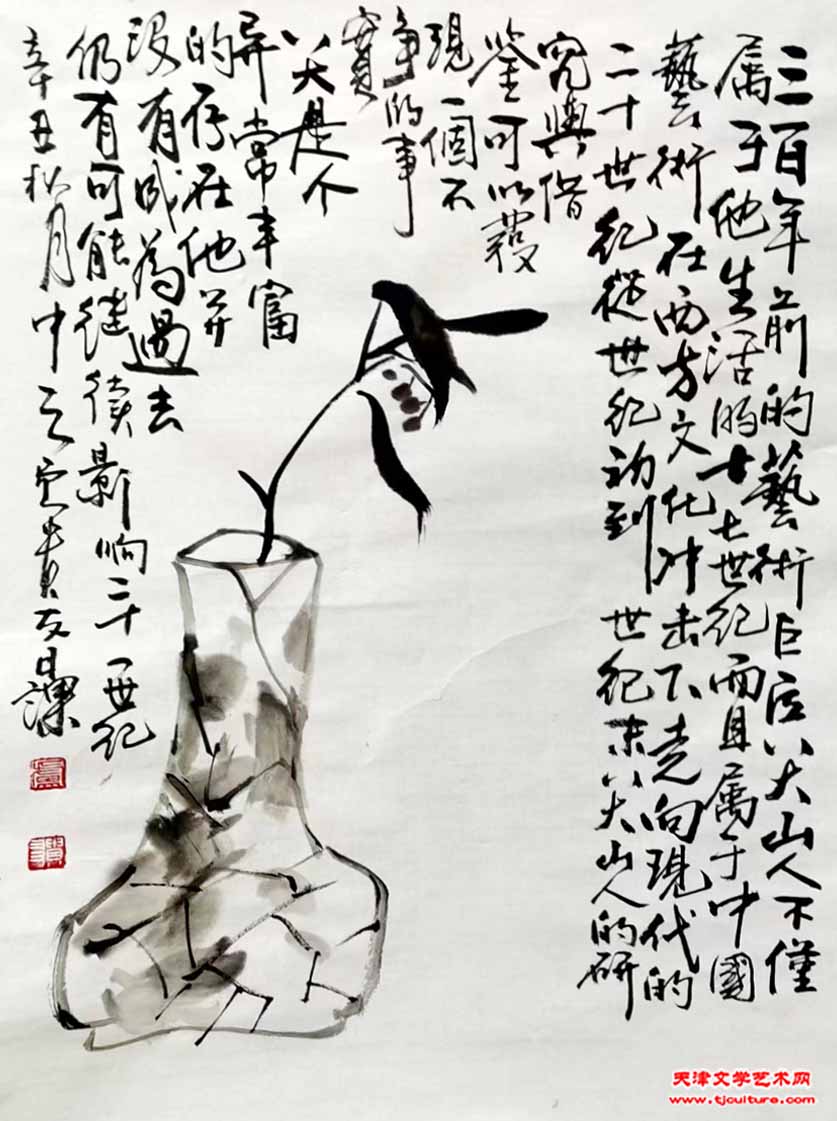 三百年前的藝術巨匠八大山人不僅
属于他生活的十七世紀而且属于中國
藝術在西方文化冲击下走向現代的
二十世紀從世紀初到世紀末八大山人的研
究與借
鉴可以發
現一個不
争的事
實
八大是个
异常丰富
的存在他并
没有成為過去
仍有可能继续影响二十一世紀
辛丑秋月中之
天津文学艺术网
www.tjculture.com